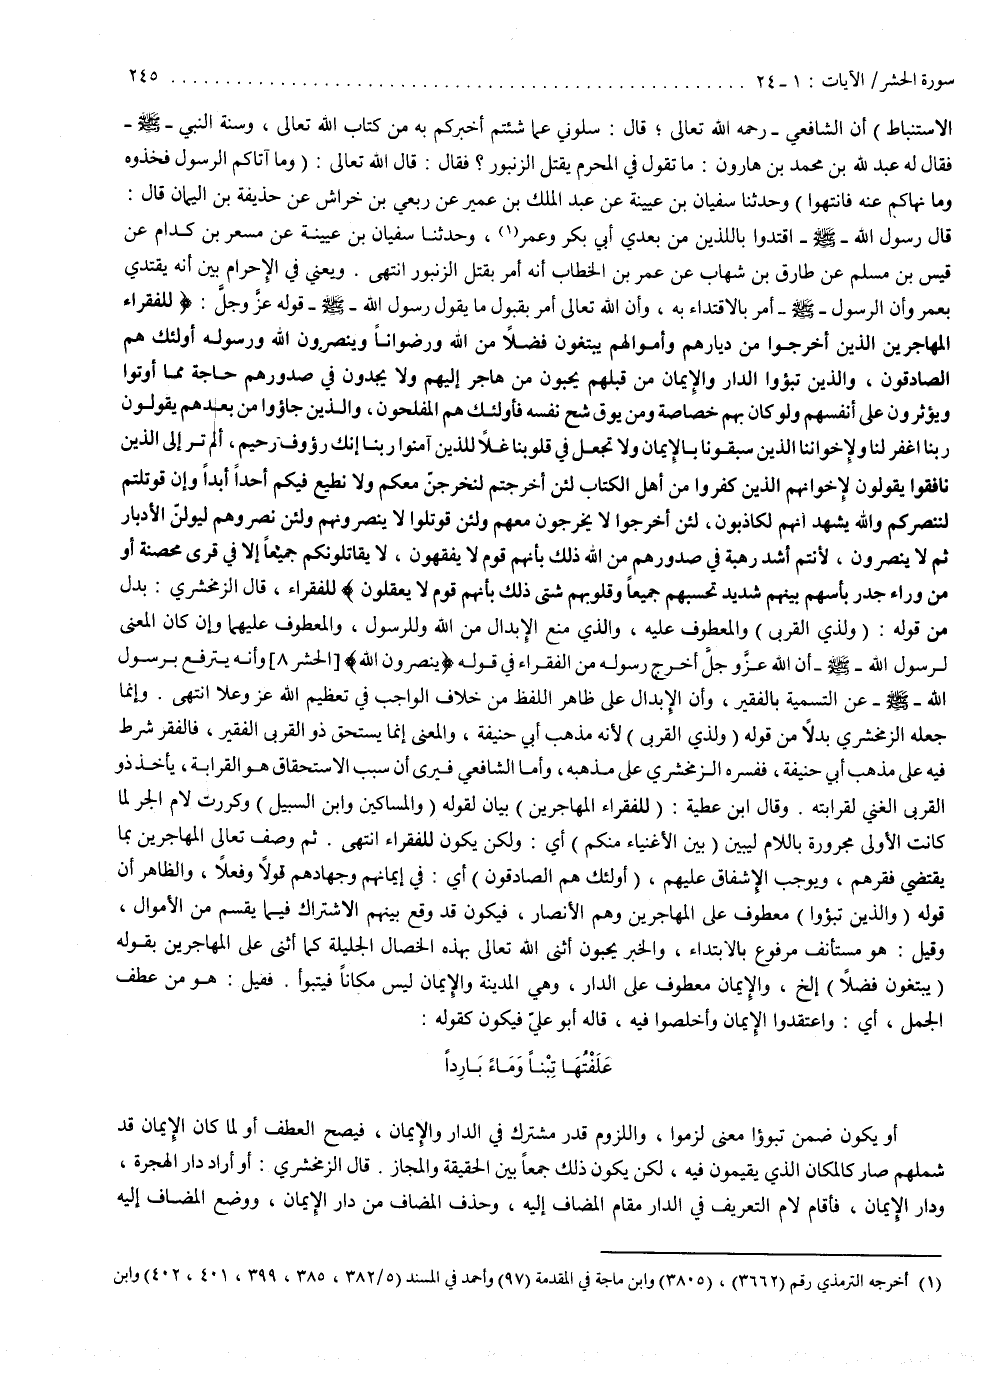 سورة الحشر/ الآيات : ١ ـ ٢٤ ............................................................ ٢٤٥
الاستنباط ) أن الشافعي ـ رحمه الله تعالى ؛ قال : سلوني عما شئتم أخبركم به من كتاب الله تعالى ، وسنة النبي ـ ﷺ ـ
فقال له عبد لله بن محمد بن هارون : ما تقول في المحرم يقتل الزنبور ؟ فقال : قال الله تعالى : ( وما آتاكم الرسول فخذوه
وما نهاكم عنه فانتهوا ) وحدثنا سفيان بن عيينة عن عبد الملك بن عمير عن ربعي بن خراش عن حذيفة بن اليمان قال :
قال رسول الله ـ ﷺ ـ اقتدوا باللذين من بعدي أبي بكر وعمر(١) ، وحدثنا سفيان بن عيينة عن مسعر بن كدام عن
قيس بن مسلم عن طارق بن شهاب عن عمر بن الخطاب أنه أمر بقتل الزنبور انتهى . ويعني في الإحرام بين أنه يقتدي
بعمر وأن الرسول ـ ﷺ ـ أمر بالاقتداء به ، وأن الله تعالى أمر بقبول ما يقول رسول الله ـ ﷺ ـ قوله عزَّ وجلَّ : ﴿ للفقراء
المهاجرين الذين أخرجوا من ديارهم وأموالهم يبتغون فضلًا من الله ورضواناً وينصرون الله ورسوله أولئك هم
الصادقون ، والذين تبؤوا الدار والإيمان من قبلهم يحبون من هاجر إليهم ولا يجدون في صدورهم حاجة مما أوتوا
ويؤثرون على أنفسهم ولو كان بهم خصاصة ومن يوق شح نفسه فأولئك هم المفلحون ، والذين جاؤوا من بعدهم يقولون
ربنا اغفر لنا ولإخواننا الذين سبقونا بالإيمان ولا تجعل في قلوبنا غلاًّ للذين آمنوا ربنا إنك رؤوف رحيم ، ألم تر إلى الذين
نافقوا يقولون لإخوانهم الذين كفروا من أهل الكتاب لئن أخرجتم لنخرجنّ معكم ولا نطيع فيكم أحداً أبداً وإن قوتلتم
لننصركم والله يشهد انهم لكاذبون ، لئن أخرجوا لا يخرجون معهم ولئن قوتلوا لا ينصرونهم ولئن نصروهم ليولنّ الأدبار
ثم لا ينصرون ، لأنتم أشد رهبة في صدورهم من الله ذلك بأنهم قوم لا يفقهون ، لا يقاتلونكم جميعاً إلا في قرى محصنة أو
من وراء جدر بأسهم بينهم شديد تحسبهم جميعاً وقلوبهم شتى ذلك بأنهم قوم لا يعقلون ﴾ للفقراء ، قال الزمخشري : بدل
من قوله : ( ولذي القربى ) والمعطوف عليه ، والذي منع الإبدال من الله وللرسول ، والمعطوف عليهما وإن كان المعنى
لرسول الله ـ ﷺ ـ أن الله عزَّ وجلَّ أخرج رسوله من الفقراء في قوله ﴿ينصرون الله﴾ [الحشر ٨] وأنه يترفع برسول
الله ـ ﷺ ـ عن التسمية بالفقير ، وأن الإبدال على ظاهر اللفظ من خلاف الواجب في تعظيم الله عز وعلا انتهى . وإنما
جعله الزمخشري بدلًا من قوله ( ولذي القربى ) لأنه مذهب أبي حنيفة ، والمعنى إنما يستحق ذو القربى الفقير ، فالفقر شرط
فيه على مذهب أبي حنيفة ، ففسره الزمخشري على مذهبه ، وأما الشافعي فيرى أن سبب الاستحقاق هو القرابة ، يأخذ ذو
القربى الغني لقرابته . وقال ابن عطية : ( للفقراء المهاجرين ) بيان لقوله ( والمساكين وابن السبيل ) وكررت لام الجر لما
كانت الأولى مجرورة باللام ليبين ( بين الأغنياء منكم ) أي : ولكن يكون للفقراء انتهى . ثم وصف تعالى المهاجرين بما
يقتضي فقرهم ، ويوجب الإشفاق عليهم ، ( أولئك هم الصادقون ) أي : في إيمانهم وجهادهم قولًا وفعلًا ، والظاهر أن
قوله ( والذين تبؤوا ) معطوف على المهاجرين وهم الأنصار ، فيكون قد وقع بينهم الاشتراك فيما يقسم من الأموال ،
وقيل : هو مستأنف مرفوع بالابتداء ، والخبر يحبون أثنى الله تعالى بهذه الخصال الجليلة كما أثنى على المهاجرين بقوله
( يبتغون فضلًا ) إلخ ، والإيمان معطوف على الدار ، وهي المدينة والإيمان ليس مكاناً فيتبوأ . فقيل : هو من عطف
الجمل ، أي : واعتقدوا الإيمان وأخلصوا فيه ، قاله أبو عليّ فيكون كقوله :
عَلَفْتُهَا تِبْناً وَمَاءً بَارِداً
أو يكون ضمن تبوؤا معنى لزموا ، واللزوم قدر مشترك في الدار والإيمان ، فيصح العطف أو لما كان الإيمان قد
شملهم صار كالمكان الذي يقيمون فيه ، لكن يكون ذلك جمعاً بين الحقيقة والمجاز . قال الزمخشري : أو أراد دار الهجرة ،
ودار الإيمان ، فأقام لام التعريف في الدار مقام المضاف إليه ، وحذف المضاف من دار الإيمان ، ووضع المضاف إليه
(١) أخرجه الترمذي رقم (٣٦٦٢) ، (٣٨٠٥) وابن ماجة في المقدمة (٩٧) وأحمد في المسند (٣٨٢/٥ ، ٣٨٥ ، ٣٩٩ ، ٤٠١ ، ٤٠٢) وابن